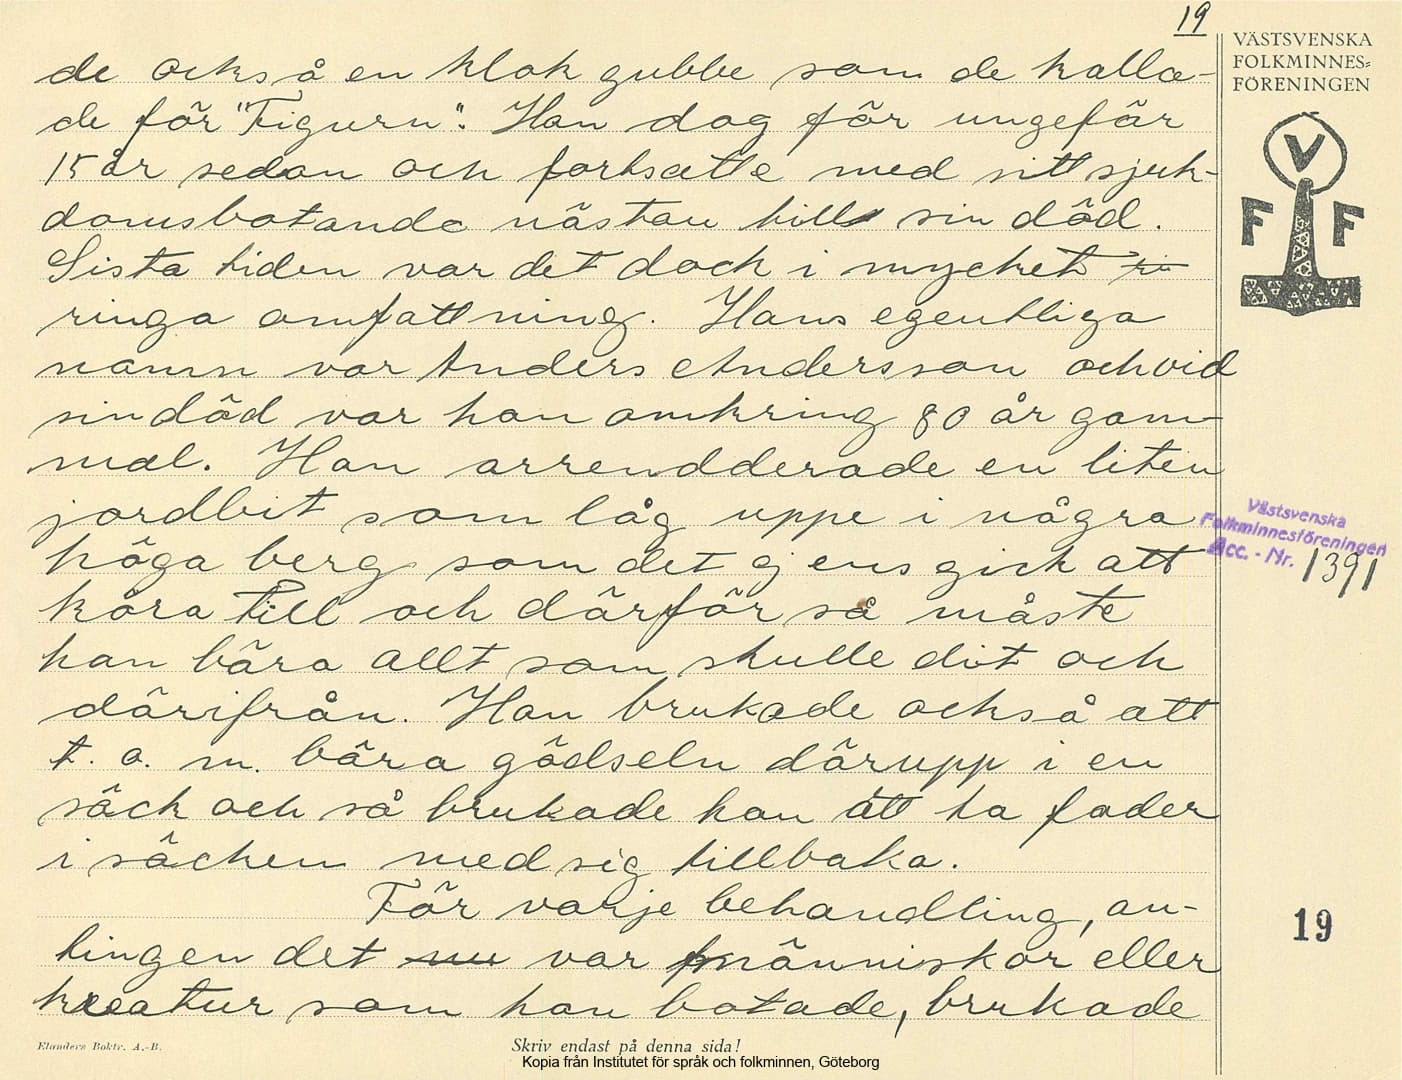 19
VÄSTSVENSKA
FOLKMINNES=
FÖRENINGEN
V
F F
de också en klok gubbe som de kalla-
de för "Figurn". Han dog för ungefär
15 år sedan och fortsatte med sitt sjuk-
domsbotande nästan till sin död.
Sista tiden var det dock i mycket
ringa omfattning. Hans egentliga
namn var Anders Andersson och vid
sin död var han omkring 80 år gam-
mal. Han arrendderade en liten
jordbit som låg uppe i några
höga berg som det ej ens gick att
köra till och därför så måste
han bära allt som skulle dit och
därifrån. Han brukade också att
t. o. m. bära gödseln därupp i en
säck och så brukade han att ta foder
i säcken med sig tillbaka.
För varje behandling, an-
tingen det var människor eller
kreatur som han botade, brukade
Västsvenska
Folkminnesföreningen
Acc. - Nr. 1391
19
Elanders Boktr. A.-B.
Skriv endast på denna sida!
Kopia från Institutet för språk och folkminnen, Göteborg